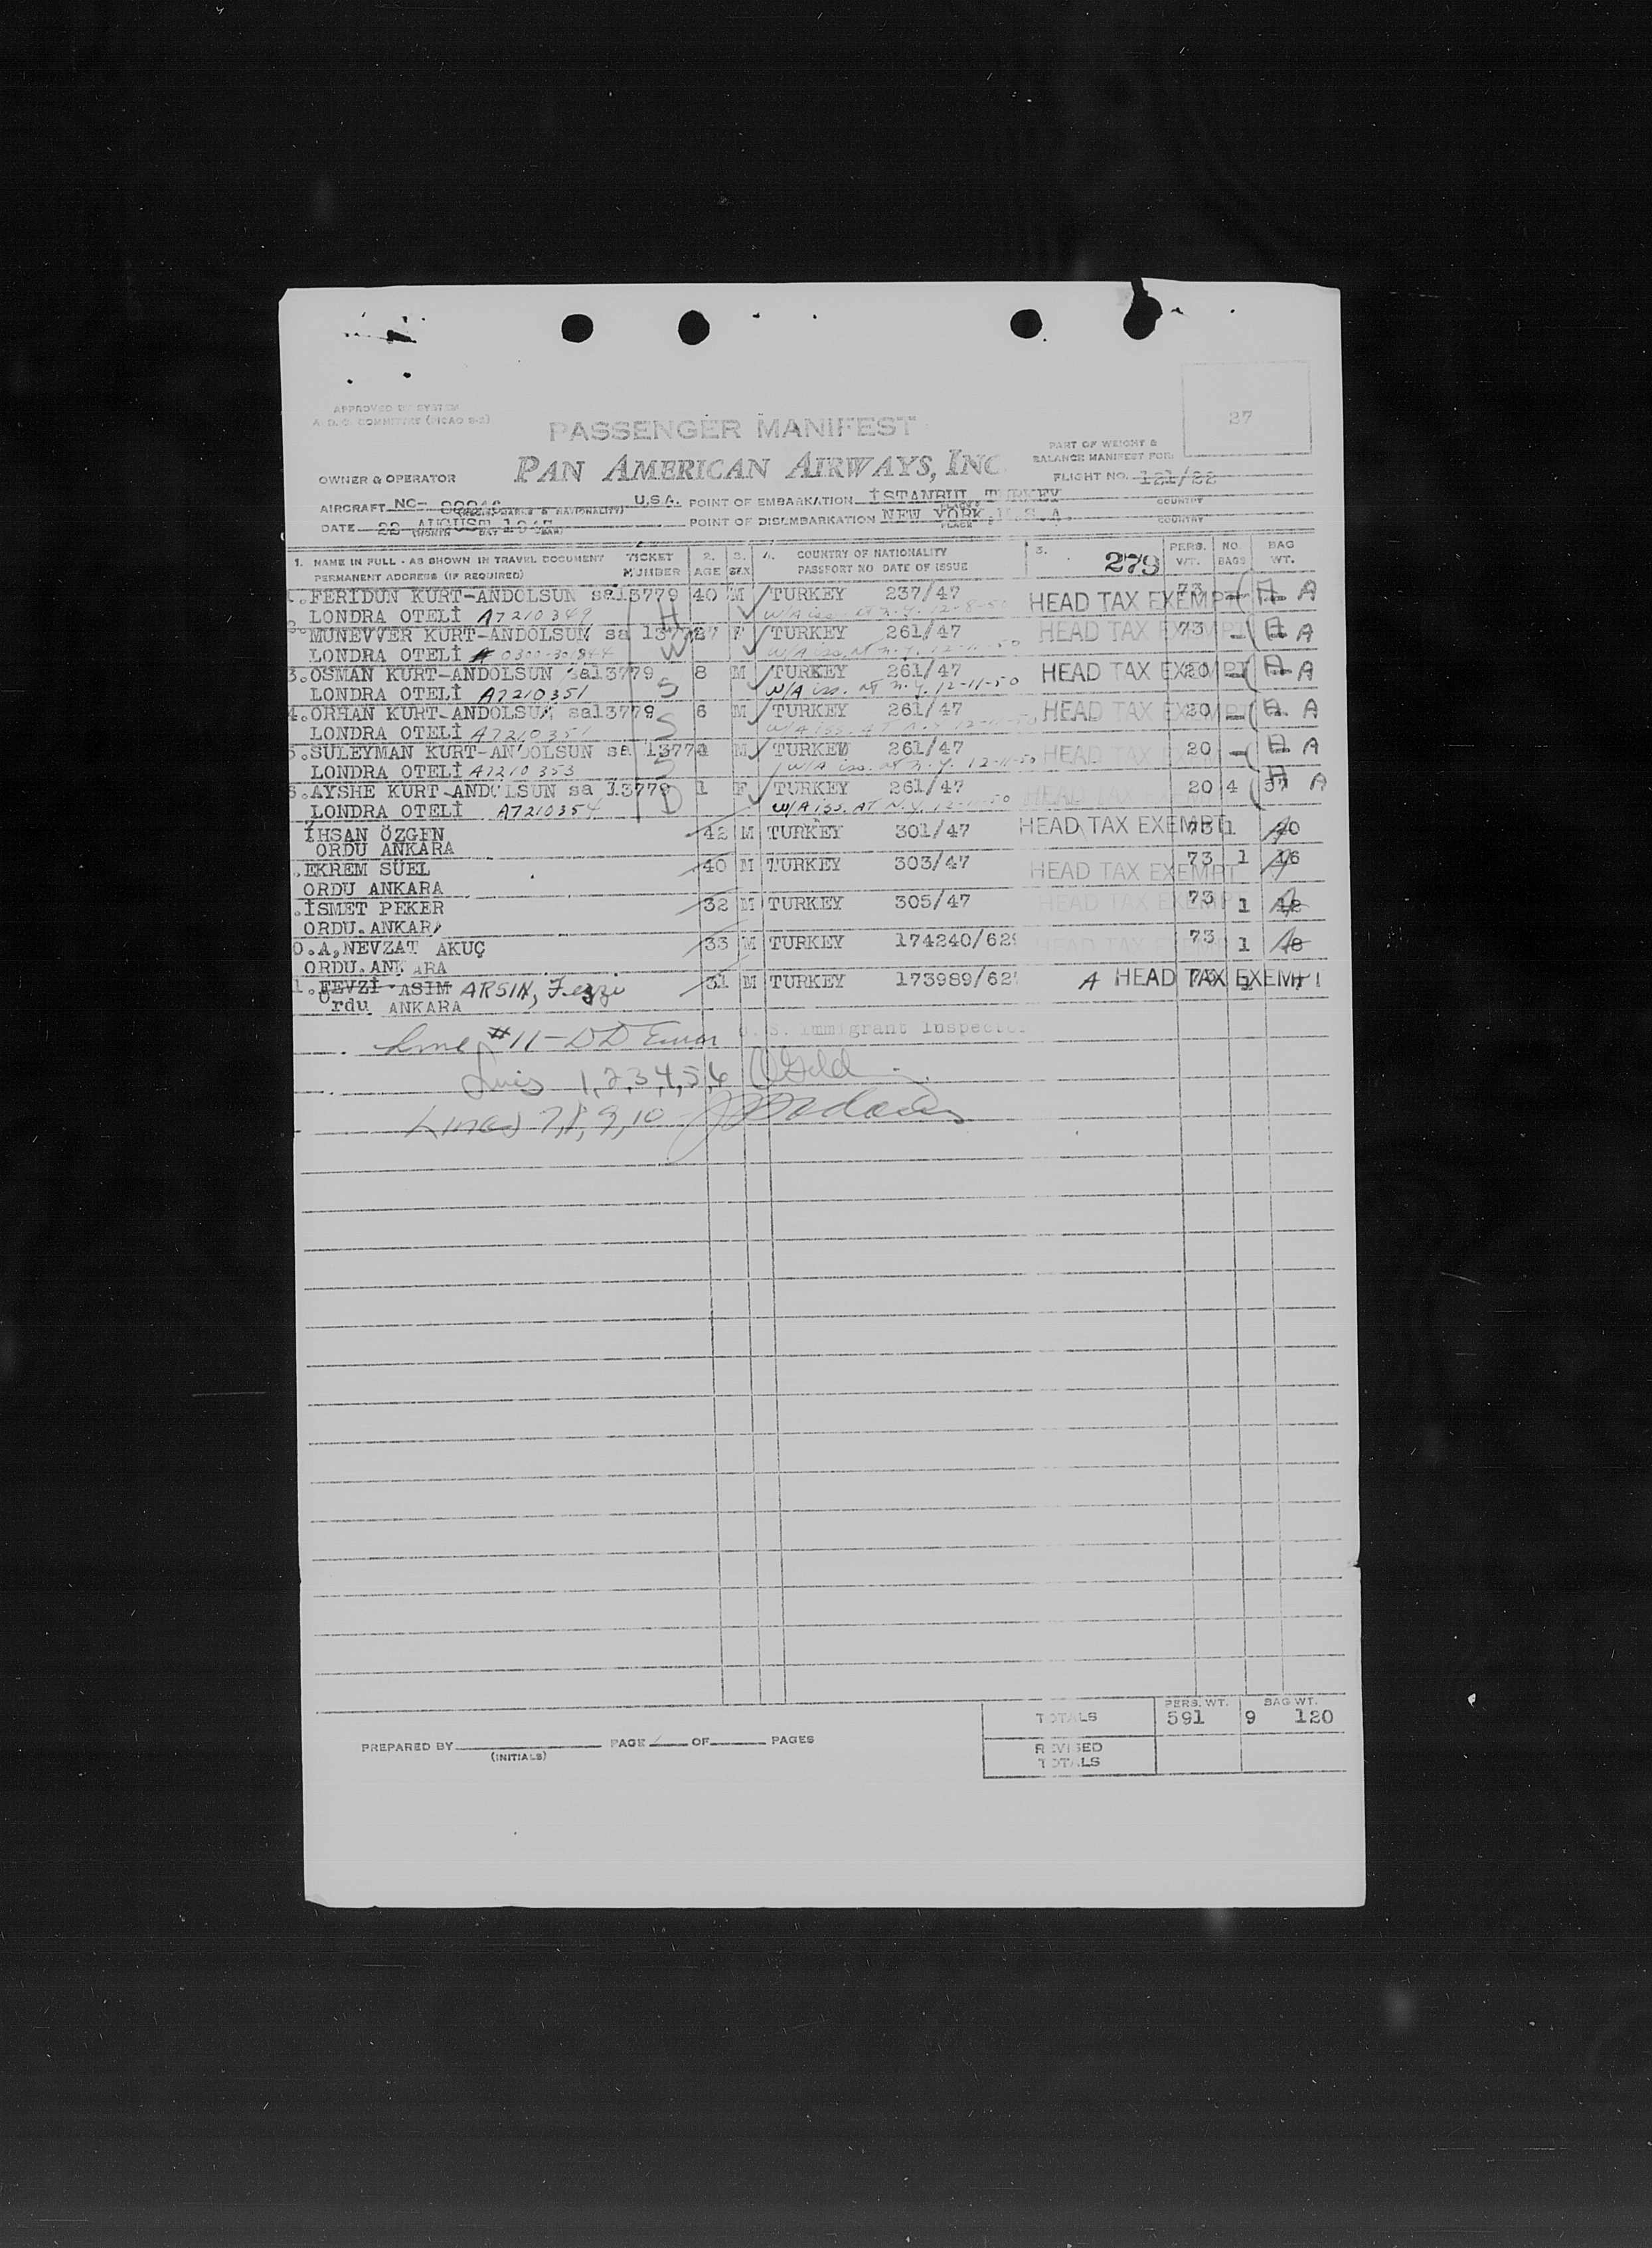 APPROVED BY SYSTEM
A. D. C. COMMITTEE (PICAO S-2)
PASSENGER MANIFEST
27
PART OF WEIGHT &
BALANCE MANIFEST FOR:
OWNER & OPERATOR PAN AMERICAN AIRWAYS, INC. FLIGHT NO. 121/22
AIRCRAFT NC- U.S.A. POINT OF EMBARKATION İSTANBUL, TURKEY COUNTRY
DATE 22 AUGUST 1947 POINT OF DISEMBARKATION NEW YORK, U.S.A. COUNTRY
(MONTH DAY YEAR) PLACE
1. NAME IN FULL - AS SHOWN IN TRAVEL DOCUMENT TICKET 2. 3. 4. COUNTRY OF NATIONALITY 5. 279 PERS. NO. BAG
PERMANENT ADDRESS (IF REQUIRED) NUMBER AGE SEX PASSPORT NO DATE OF ISSUE WT. BAGS WT.
1. FERIDUN KURT-ANDOLSUN sa13779 40 M TURKEY 237/47 HEAD TAX EXEMPT 73 - A A
LONDRA OTELİ A7210349 H W/A iss. at N.Y. 12-8-50
MUNEVVER KURT-ANDOLSUN sa 1377 27 F TURKEY 261/47 HEAD TAX EXEMPT 73 - A A
LONDRA OTELİ W W/A iss. at N.Y. 12-11-50
3. OSMAN KURT-ANDOLSUN sa13779 8 M TURKEY 261/47 HEAD TAX EXEMPT 20 - A A
LONDRA OTELİ A7210351 S W/A iss. at N.Y. 12-11-50
4. ORHAN KURT-ANDOLSUN sa13779 6 M TURKEY 261/47 HEAD TAX EXEMPT 20 - A A
LONDRA OTELİ S W/A iss. at N.Y. 12-11-50
5. SULEYMAN KURT-ANDOLSUN sa 1377 M TURKEY 261/47 HEAD TAX EXEMPT 20 - A A
LONDRA OTELİ A7210353 S W/A iss. at N.Y. 12-11-50
6. AYSHE KURT-ANDOLSUN sa 13779 1 F TURKEY 261/47 HEAD TAX 20 4 37 A
LONDRA OTELİ A7210354 D W/A iss. AT N.Y. 12-11-50
İHSAN ÖZGEN 42 M TURKEY 301/47 HEAD TAX EXEMPT 73 1 20
ORDU ANKARA
. EKREM SÜEL 40 M TURKEY 303/47 HEAD TAX EXEMPT 73 1 16
ORDU ANKARA
. İSMET PEKER 32 M TURKEY 305/47 HEAD TAX EXEMP 73 1
ORDU. ANKARA
0. A, NEVZAT AKUÇ 33 M TURKEY 174240/629 HEAD TAX 73 1 18
ORDU. ANKARA
1. FEVZİ ASIM ARSIN, Fezzi 31 M TURKEY 173989/62 A HEAD TAX EXEMPT
Ordu ANKARA
U. S. Immigrant Inspector
Line #11 - DD
Lines 1,2,3,4,5,6
Lines 7,8,9,10
PERS. WT. BAG WT.
TOTALS 591 9 120
PREPARED BY PAGE OF PAGES
(INITIALS)
REVISED
TOTALS